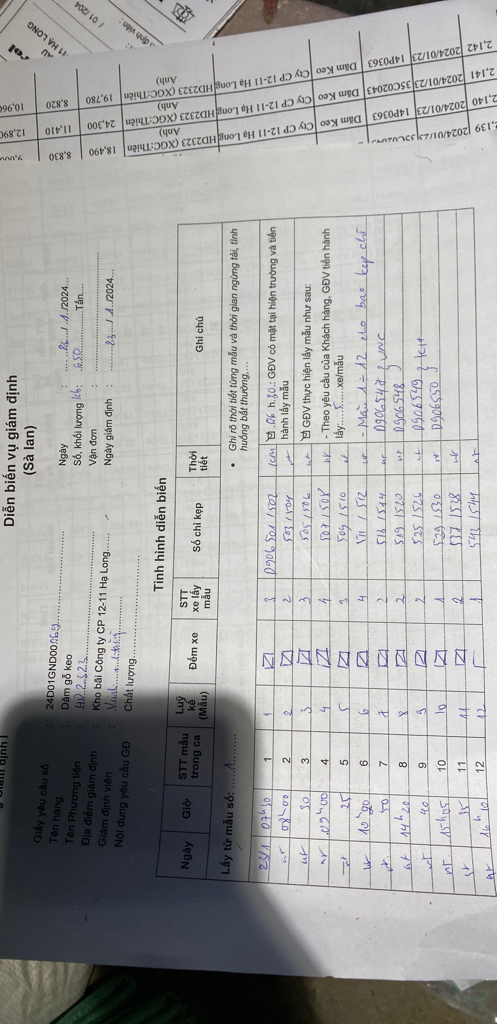 Diễn biến vụ giám định
(Sà lan)
Giấy yêu cầu số : 24D01GND00069
Tên hàng : Dăm gỗ keo
Tên Phương tiện : HD2323
Địa điểm giám định : Kho bãi Công ty CP 12-11 Hạ Long
Giám định viên :
Nội dung yêu cầu GĐ : Chất lượng
Ngày : 23 / 1 /2024
Số, khối lượng : 650 Tấn
Vận đơn :
Ngày giám định : 23 / 1 /2024
Tình hình diễn biến
Ngày Giờ STT mẫu trong ca Luỹ kế (Mẫu) Đếm xe STT xe lấy mẫu Số chì kẹp Thời tiết Ghi chú
Lấy từ mẫu số: 1
• Ghi rõ thời tiết từng mẫu và thời gian ngừng tải, tình huống bất thường,...
23/1 07h10 1 1 ☑ 3 D906501/502
nt 08h00 2 2 ☑ 2 503/504 nt
nt 30 3 3 ☑ 3 505/506 nt
nt 09h00 4 4 ☑ 4 507/508 nt
nt 25 5 5 ☑ 3 509/510 nt
nt 10h00 6 6 ☑ 4 511/512 nt
nt 50 7 7 ☑ 2 nt
nt 14h20 8 8 ☑ 2 519/520 nt
nt 40 9 9 ☑ 2 525/526 nt
nt 15h05 10 10 ☑ 1 529/530 nt
nt 35 11 11 ☑ 2 537/538 nt
nt 16h10 12 12 1 nt
☑ 06 h 30: GĐV có mặt tại hiện trường và tiến hành lấy mẫu
☑ GĐV thực hiện lấy mẫu như sau:
- Theo yêu cầu của Khách hàng, GĐV tiến hành lấy: 5 xe/mẫu
- Mẫu 1-12 cho bao kẹp chì
D906547 } VNC
D906548
D906549 } KH
D906550
2,139 2024/01/23 Dăm Keo Cty CP 12-11 Hạ Long HD2323 (XGC:Thiên Anh) 18,490 8,830
2,140 2024/01/23 14P0363 Dăm Keo Cty CP 12-11 Hạ Long HD2323 (XGC:Thiên Anh) 24,300 11,410 12,890
2,141 2024/01/23 35C02043 Dăm Keo Cty CP 12-11 Hạ Long HD2323 (XGC:Thiên Anh) 19,780 8,820 10,960
2,142 2024/01/23 14P0363